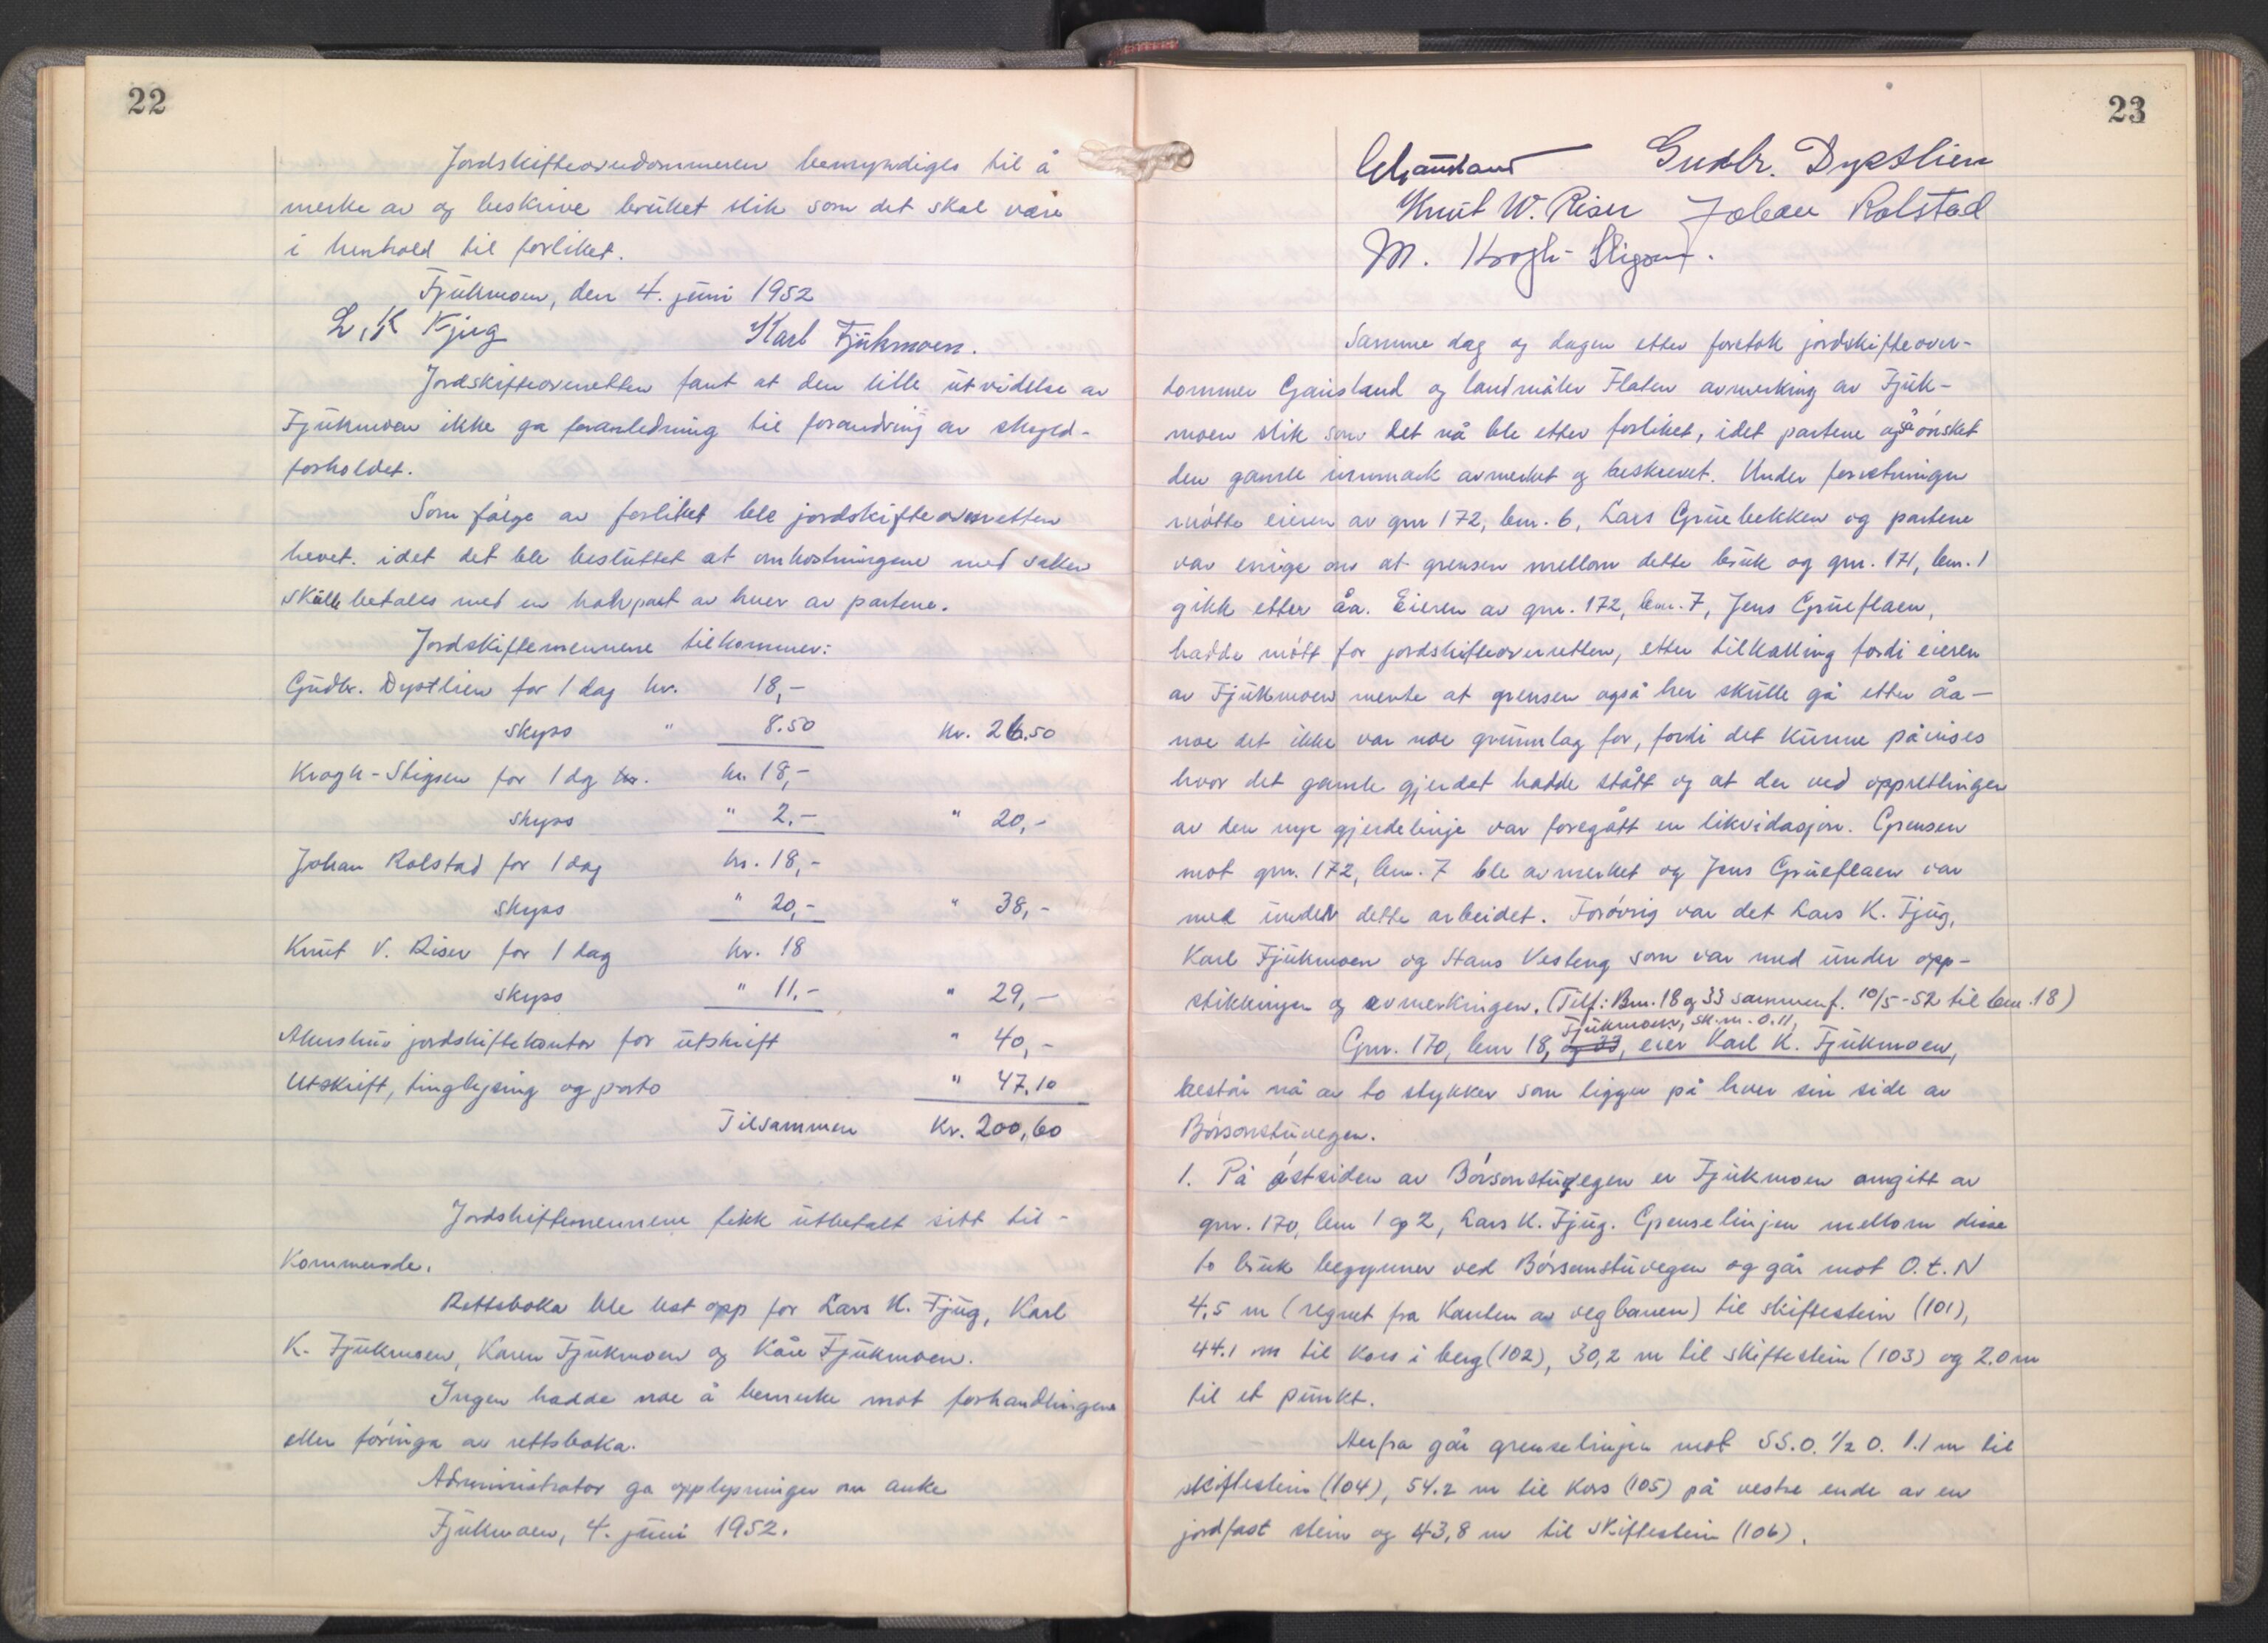 22
Jordskifteoverdommeren bemyndiges til å
merke av og beskrive bruket slik som det skal være
i henhold til forliket.
Fjukmoen, den 4. juni 1952
L. K Fjug Karl Fjukmoen.
Jordskifteoverretten fant at den lille utvidelse av
Fjukmoen ikke ga foranledning til forandring av skyld-
forholdet.
Som følge av forliket ble jordskifteoverretten
hevet. idet det ble besluttet at omkostningene med saken
skulle betales med en halvpart av hver av partene.
Jordskiftemennene tilkommer:
Gudbr. Dystlien for 1 dag kr. 18,-
skyss " 8.50 kr. 26.50
Krogh-Stigsen for 1 dg kr. kr. 18,-
skyss " 2.- " 20,-
Johan Rolstad for 1 dag kr. 18,-
skyss " 20,- " 38,-
Knut V. Riser for 1 dag kr. 18
skyss " 11.- " 29,-
Akershus jordskiftekontor for utskrift " 40,-
Utskrift, tinglysing og porto " 47.10
Tilsammen Kr. 200,60
Jordskiftemennene fikk utbetalt sitt til-
kommende.
Rettsboka ble lest opp for Lars K. Fjug, Karl
K. Fjukmoen, Karen Fjukmoen og Kåre Fjukmoen.
Ingen hadde noe å bemerke mot forhandlingene
eller føringa av rettsboka.
Administrator ga opplysninger om anke
Fjukmoen, 4. juni 1952.
23
Gausland Gudbr. Dystlien
Knut W. Riser Johan Rolstad
M. Krogh-Stigsen.
Samme dag og dagen etter foretok jordskifteover-
dommer Gausland og landmåler Flaten avmerking av Fjuk-
moen slik som det nå ble etter forliket, idet partene også ønsket
den gamle innmark avmerket og beskrevet. Under forretningen
møtte eieren av gnr 172, bnr. 6, Lars Gruebekken og partene
var enige om at grensen mellom dette bruk og gnr. 171, bnr. 1
gikk etter åa. Eieren av gnr. 172, bnr. 7, Jens Grueflaen,
hadde møtt for jordskifteoverretten, etter tilkalling fordi eieren
av Fjukmoen mente at grensen også her skulle gå etter åa -
noe det ikke var noe grunnlag for, fordi det kunne påvises
hvor det gamle gjerdet hadde stått og at der ved opprettingen
av den nye gjerdelinje var foregått en likvidasjon. Grensen
mot gnr. 172, bnr. 7 ble avmerket og Jens Grueflaen var
med under dette arbeidet. Forøvrig var det Lars K. Fjug,
Karl Fjukmoen og Hans Vesteng som var med under opp-
stikkingen og avmerkingen. (Tilf: Bnr. 18 og 33 sammenf. 10/5-52 til bnr. 18)
Fjukmoen, sk.m. 0.11,
Gnr. 170, bnr 18, og 33, eier Karl K. Fjukmoen,
består nå av to stykker som ligger på hver sin side av
Børsonstuvegen.
1. På østsiden av Børsonstuvegen er Fjukmoen omgitt av
gnr. 170, bnr 1 og 2, Lars K. Fjug. Grenselinjen mellom disse
to bruk begynner ved Børsonstuvegen og går mot O.t.N
4,5 m (regnet fra kanten av vegbanen) til skiftestein (101),
44.1 m til kors i berg (102), 30,2 m til skiftestein (103) og 2.0 m
til et punkt.
Herfra går grenselinjen mot SS.O. 1/2 O. 1.1 m til
skiftestein (104), 54.2 m til kors (105) på vestre ende av en
jordfast stein og 43,8 m til skiftestein (106).